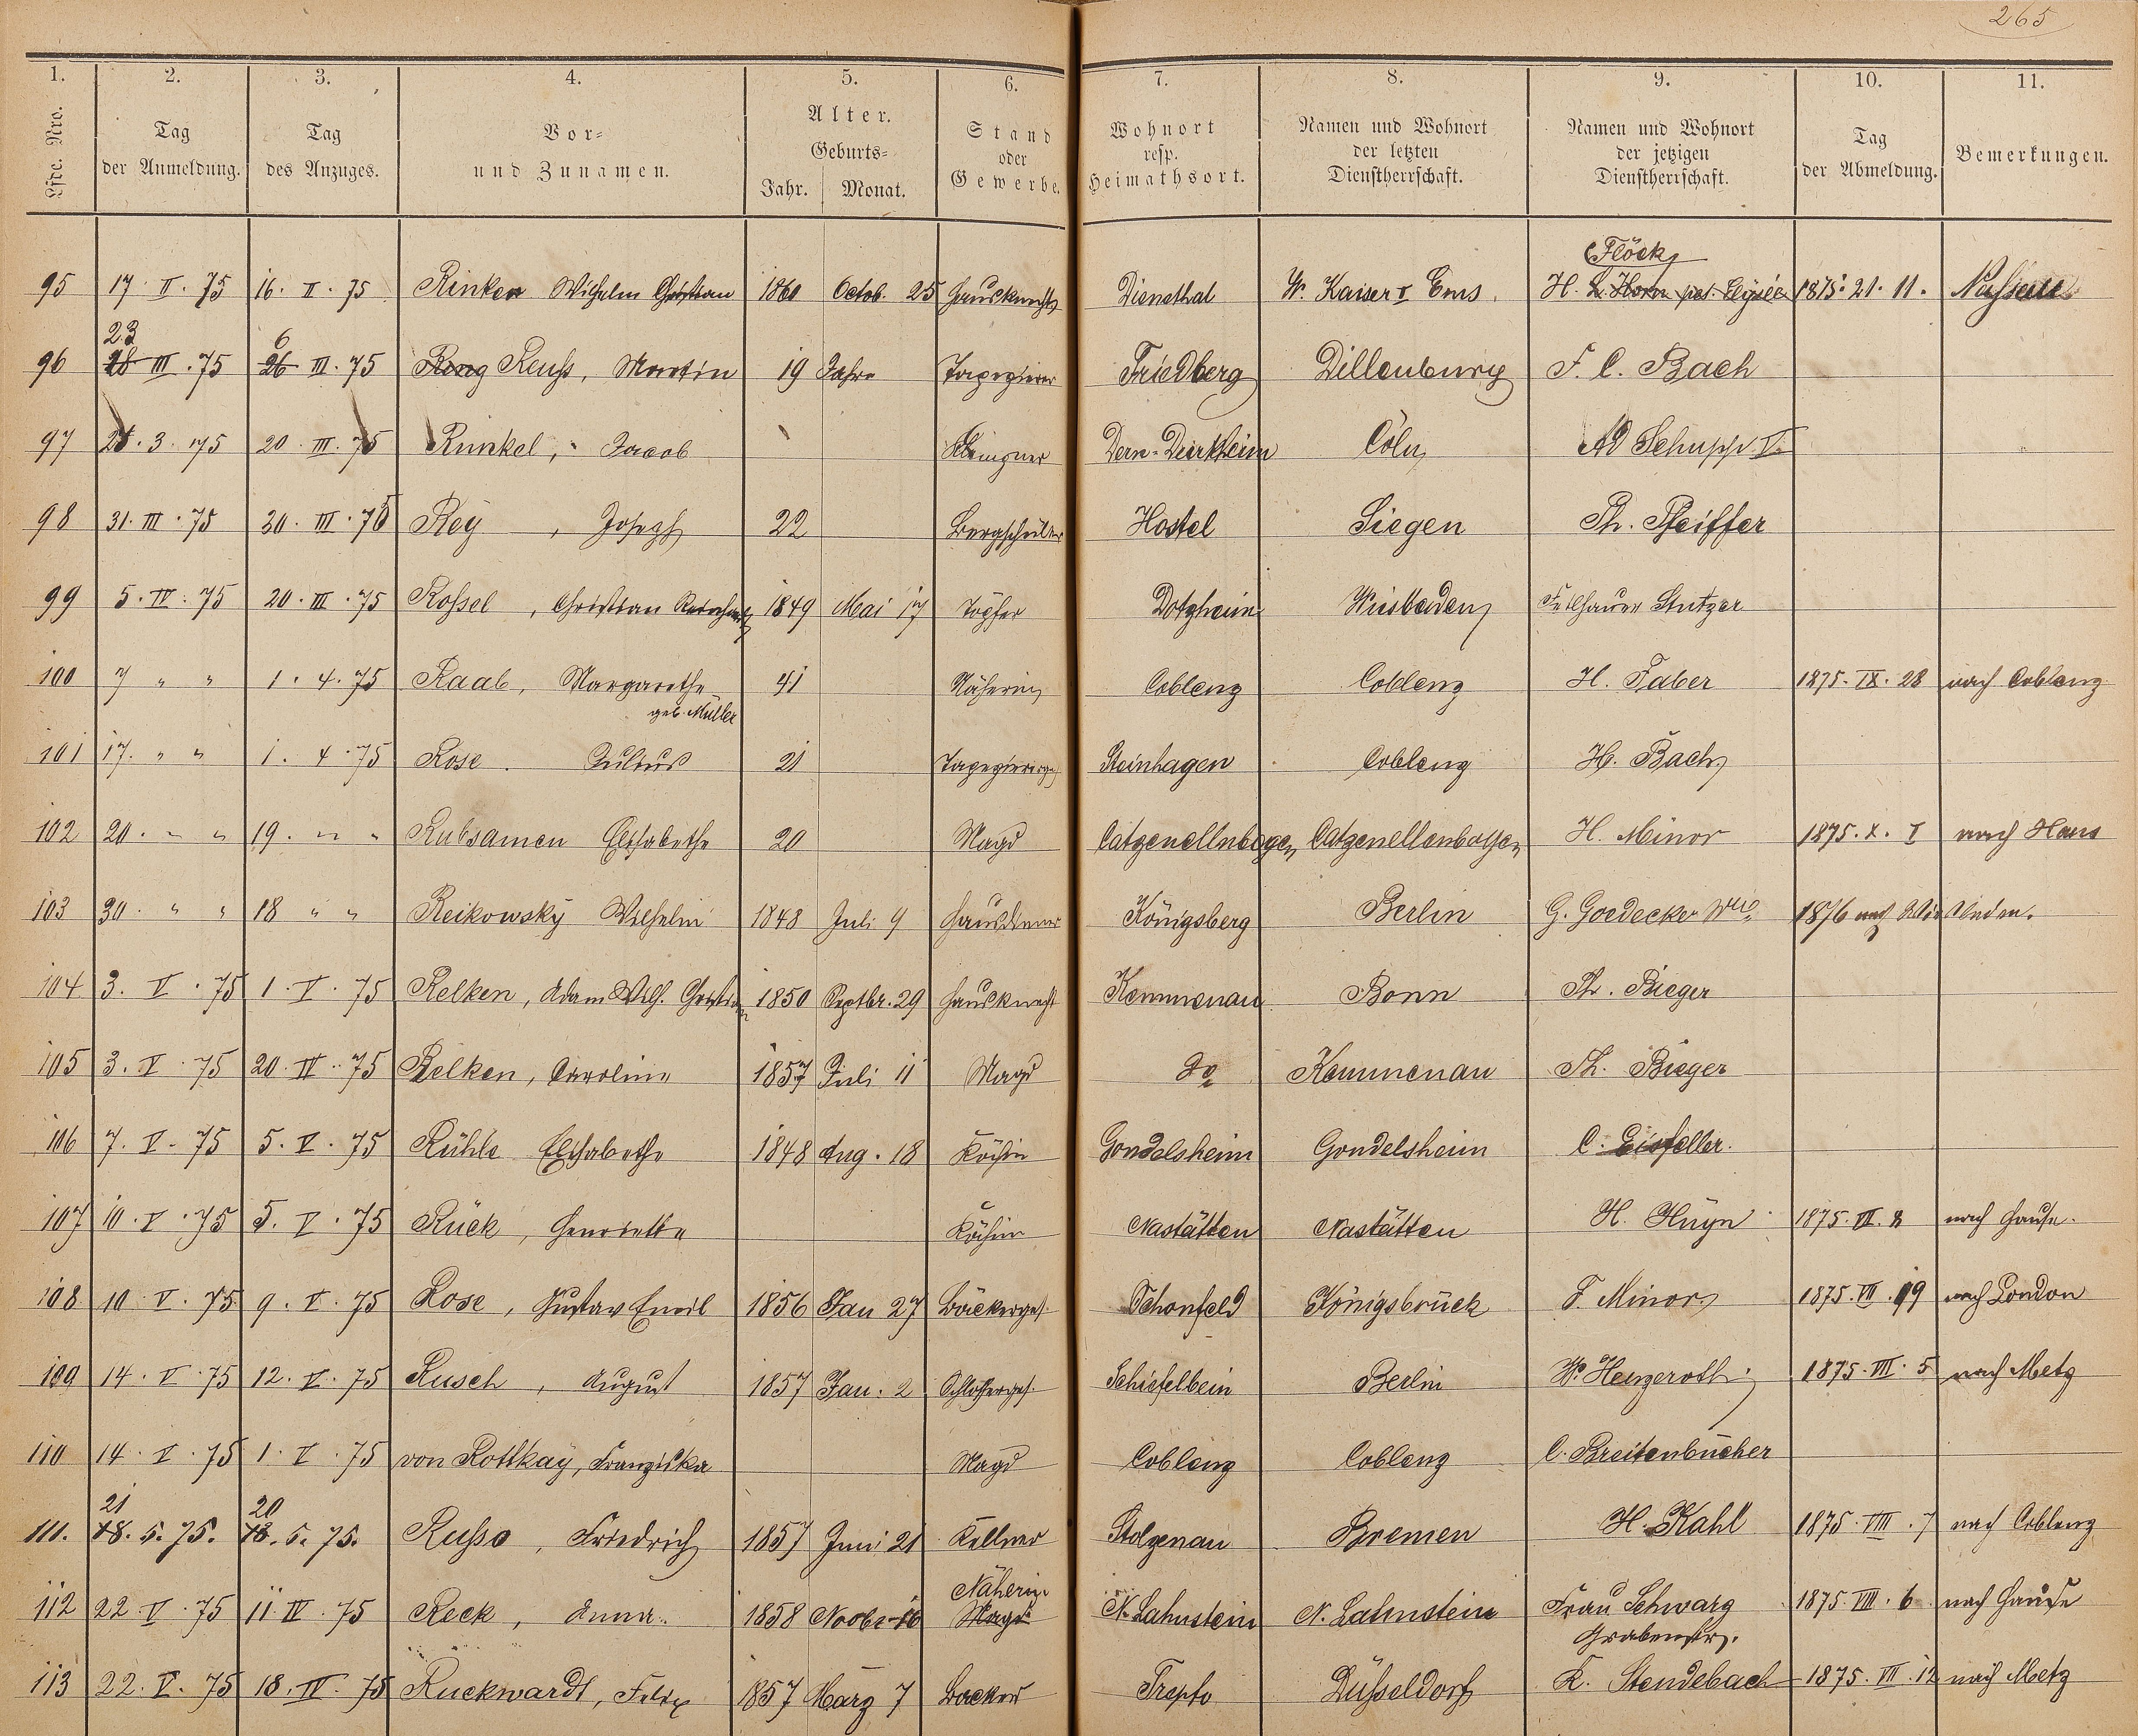 265
1. 2. 3. 4. 5. 6. 7. 8. 9. 10. 11.
Lfde. Nro. Tag der Anmeldung. Tag des Anzuges. Vor= und Zunamen. Alter. Geburts= Jahr. Monat. Stand oder Gewerbe. Wohnort resp. Heimathsort. Namen und Wohnort der letzten Dienstherrschaft. Namen und Wohnort der jetzigen Dienstherrschaft. Tag der Abmeldung. Bemerkungen.
Flöck
95 17. II. 75 16. II. 75 Rinken Wilhelm Christian 1860 Octob. 25 Hausknecht Dienethal W. Kaiser Ems. H. L. Horn 1875. 21. 11. Nassau
23 6
96 28 III. 75 26 III. 75 Reuss, Martin 19 Jahre Tapezierer Friedberg Dillenburg F. C. Bach
97 3. 75 20. III. 75 Runkel, Jacob Cöln Ad Schupp V.
98 31. III. 75 30. III. 75 Rey, Joseph 22 Bergschüler Hostel Siegen Ph. Pfeiffer
99 5. IV. 75 20. III. 75 Rossel, Christian 1849 Mai 17 Töpfer Dotzheim Wiesbaden Feilhauer Stutzer
100 7 " " 1. 4. 75 Raab, Margarethe 41 Näherin Coblenz Coblenz H. Faber 1875. IX. 28 nach Coblenz
geb. Müller
101 17. " " 1. 4. 75 Rose. Julius 21 Tapezierges. Steinhagen Coblenz H. Bach
102 20. " " 19. " " Rubsamen Elisabethe 20 Magd Catzenellnbogen Catzenellenbogen H. Minor 1875. X. I nach Haus
103 30. " " 18 " " Reikowsky Wilhelm 1848 Juli 9 Hausdiener Königsberg Berlin G. Goedecker Wwe 1876 nach Wiesbaden.
104 3. V. 75 1. V. 75 Relken, Adam Wilh. Christian 1850 Septbr. 29 Hausknecht Kemmenau Bonn Ph. Bieger
105 3. V. 75 20. IV. 75 Relken, Caroline 1857 Juli 11 Magd do Kemmenau Ph. Bieger
106 7. V. 75 5. V. 75 Rühle Elisabethe 1848 Aug. 18 Köchin Gondelsheim Gondelsheim C. Eisfeller.
107 10. V. 75 5. V. 75 Rück, Henriette Köchin Nastätten Nastätten H. Huyn 1875. VI. 2 nach Hause.
108 10. V. 75 9. V. 75 Rose, Gustav Emil 1856 Jan 27 Bäckerges. Schonfeld Königsbrück F. Minor 1875. VII. 19 nach London
109 14. V. 75 12. V. 75 Rusch, August 1857 Jan. 2 Schlosserges. Schiefelbein Berlin W. Herzeroth 1875. VIII. 5 nach Metz
110 14. V. 75 1. V. 75 von Rottkay, Franziska Magd Coblenz Coblenz C. Breitenbücher
21 20
111. 18. 5. 75. 18. 5. 75. Russo, Friedrich 1857 Juni 21 Kellner Stolzenau Bremen H. Kahl 1875. VIII. 7 nach Coblenz
Näherin
112 22. V. 75 11. IV. 75 Reck, Anna. 1858 Novbr. 16 Magd N. Lahnstein N. Lahnstein Frau Schwarz 1875. VIII. 6 nach Hause
Grabenstr.
113 22. V. 75 18. IV. 75 Ruckwardt, Felix 1857 März 7 Backer Trepto Düsseldorf K. Stendebach 1875. VII. 12 nach Metz